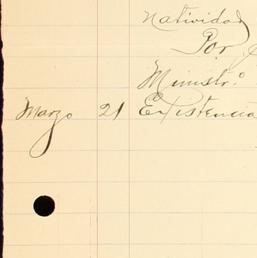 Natividad
Por
Ministro
Marzo 21 Existencia